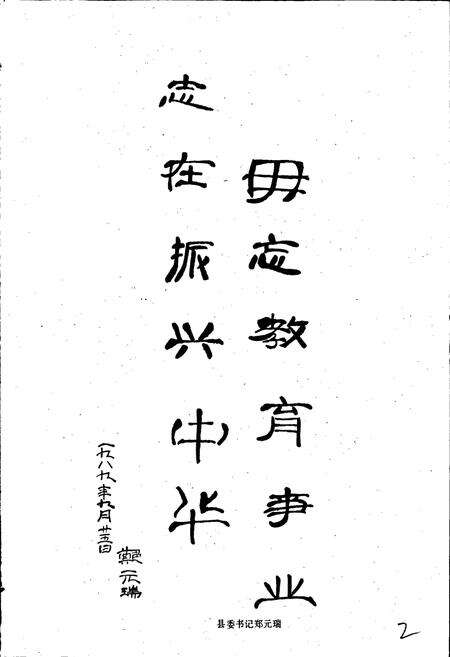 毋忘教育事业
志在振兴中华
一九八九年九月廿五日
郑元瑞
县委书记郑元瑞
2